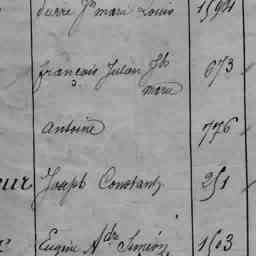 Pierre Jn marie Louis 1594
françois Julien Jh 673
marie
antoine 776
eur Joseph Constant 251
Eugène Adre Siméon 1503